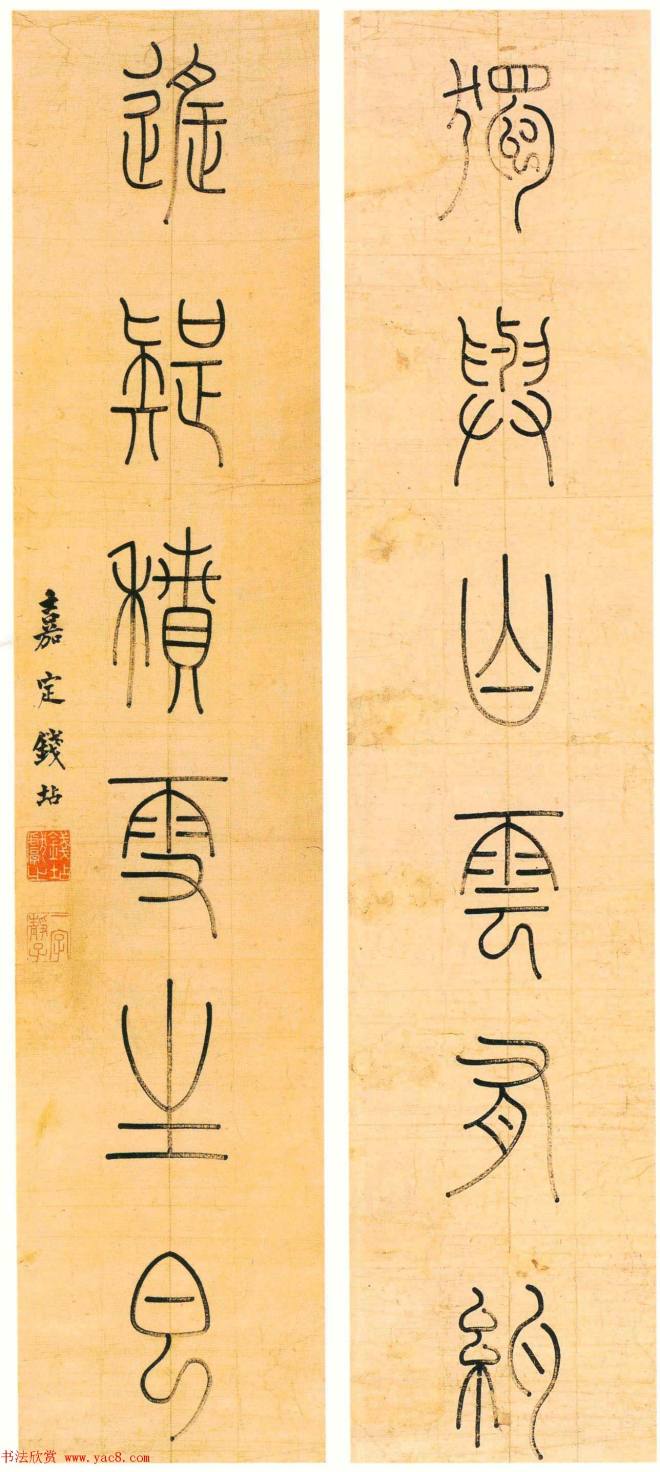 獨與山雲有約
遙疑積雪生
嘉定錢坫
錢坫獻之
书法欣赏 www.yac8.com